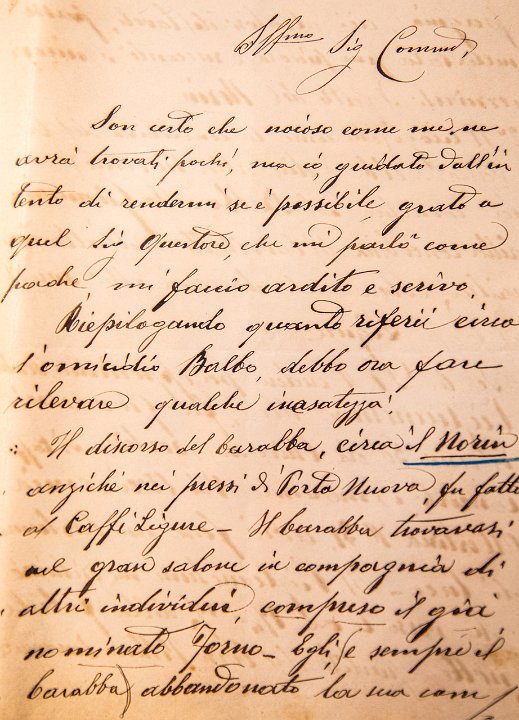 Ill.mo Sig Comend,
Son certo che noioso come me, ne
avrà trovati pochi, ma io, guidato dall'in
tento di rendermi se è possibile, grato a
quel Sig Questore, che mi parlò come
padre, mi faccio ardito e scrivo.
Riepilogando quanto riferii circa
l'omicidio Balbo, debbo ora fare
rilevare qualche inesatezza:
Il discorso del barabba, circa il Norin
anziché nei pressi di Porta Nuova, fu fatto
al Caffè Ligure - Il barabba trovavasi
nel gran salone in compagnia di
altri individui, compreso il già
nominato Torno - Egli (e sempre il
barabba) abbandonato la sua com/